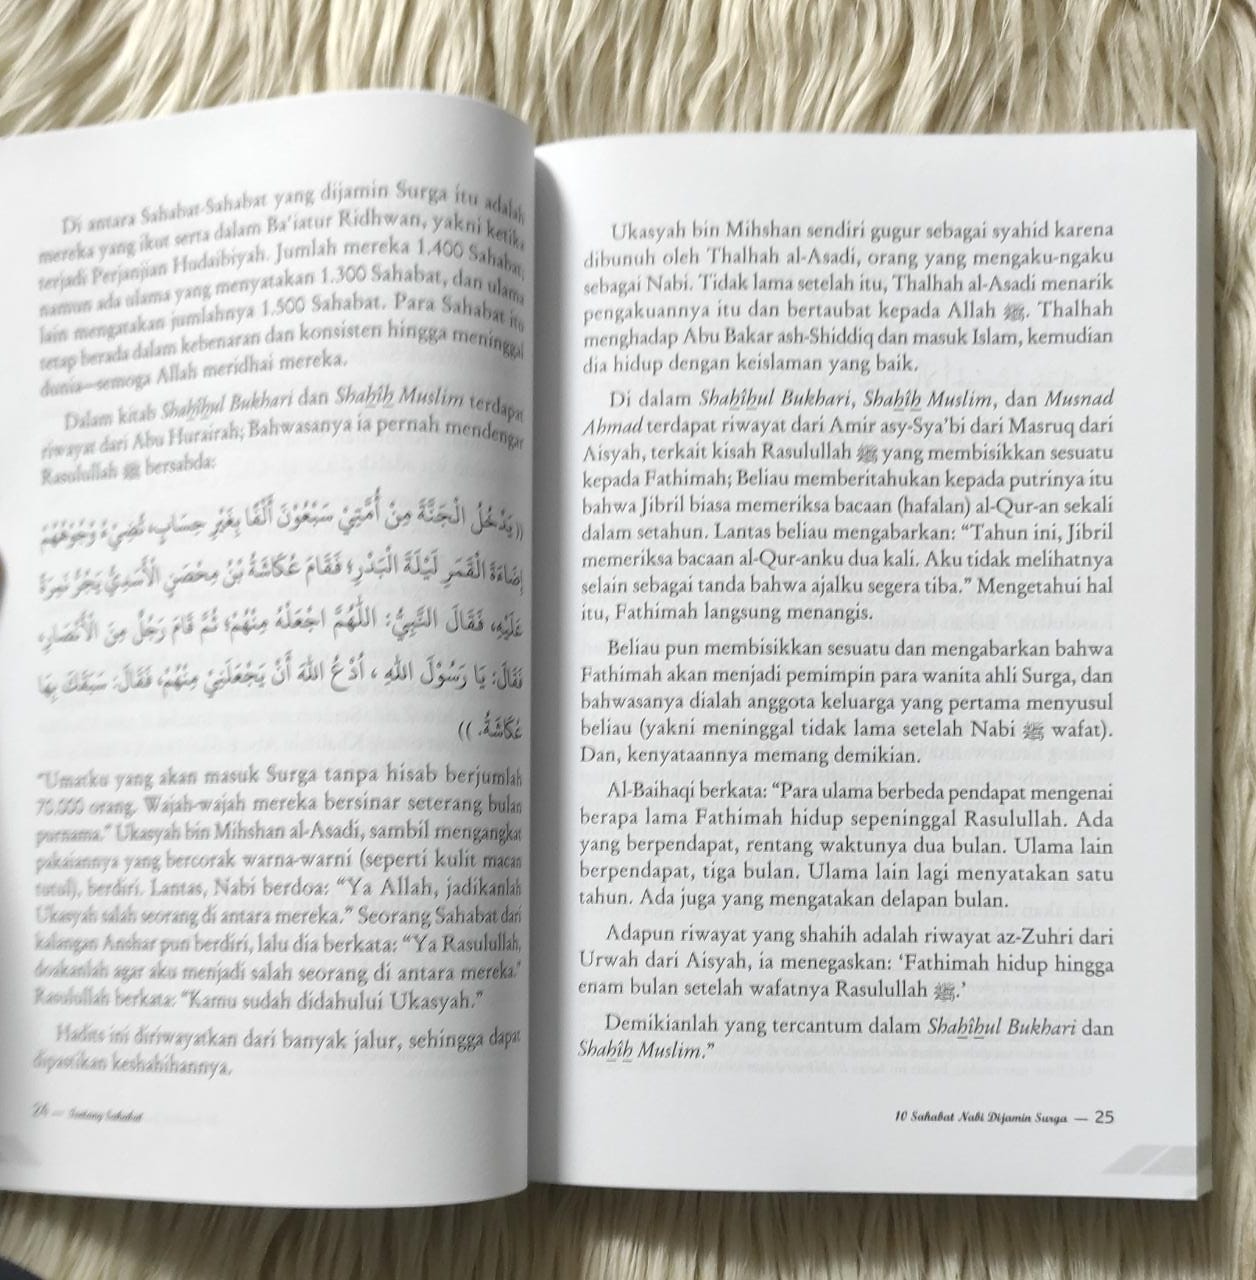 Di antara Sahabat-Sahabat yang dijamin Surga itu adalah
mereka yang ikut serta dalam Ba'iatur Ridhwan, yakni ketika
terjadi Perjanjian Hudaibiyah. Jumlah mereka 1.400 Sahabat,
namun ada ulama yang menyatakan 1.300 Sahabat, dan ulama
lain mengatakan jumlahnya 1.500 Sahabat. Para Sahabat itu
tetap berada dalam kebenaran dan konsisten hingga meninggal
dunia—semoga Allah meridhai mereka.
Dalam kitab Shahîhul Bukhari dan Shahîh Muslim terdapat
riwayat dari Abu Hurairah; Bahwasanya ia pernah mendengar
Rasulullah ﷺ bersabda:
((يَدْخُلُ الْجَنَّةَ مِنْ أُمَّتِيْ سَبْعُوْنَ أَلْفًا بِغَيْرِ حِسَابٍ، تُضِيْءُ وُجُوْهُهُمْ
إِضَاءَةَ الْقَمَرِ لَيْلَةَ الْبَدْرِ؛ فَقَامَ عُكَّاشَةُ بْنُ مِحْصَنٍ الْأَسَدِيُّ يَجُرُّ نَمِرَةً
عَلَيْهِ، فَقَالَ النَّبِيُّ: اللَّهُمَّ اجْعَلْهُ مِنْهُمْ؛ ثُمَّ قَامَ رَجُلٌ مِنَ الْأَنْصَارِ،
فَقَالَ: يَا رَسُوْلَ اللهِ ، اُدْعُ اللهَ أَنْ يَجْعَلَنِيْ مِنْهُمْ، فَقَالَ: سَبَقَكَ بِهَا
عُكَّاشَةُ. ))
"Umatku yang akan masuk Surga tanpa hisab berjumlah
70.000 orang. Wajah-wajah mereka bersinar seterang bulan
purnama." Ukasyah bin Mihshan al-Asadi, sambil mengangkat
pakaiannya yang bercorak warna-warni (seperti kulit macan
tutul), berdiri. Lantas, Nabi berdoa: "Ya Allah, jadikanlah
Ukasyah salah seorang di antara mereka." Seorang Sahabat dari
kalangan Anshar pun berdiri, lalu dia berkata: "Ya Rasulullah,
doakanlah agar aku menjadi salah seorang di antara mereka."
Rasulullah berkata: "Kamu sudah didahului Ukasyah."
Hadits ini diriwayatkan dari banyak jalur, sehingga dapat
dipastikan keshahihannya.
24 — Tentang Sahabat
Ukasyah bin Mihshan sendiri gugur sebagai syahid karena
dibunuh oleh Thalhah al-Asadi, orang yang mengaku-ngaku
sebagai Nabi. Tidak lama setelah itu, Thalhah al-Asadi menarik
pengakuannya itu dan bertaubat kepada Allah ﷻ. Thalhah
menghadap Abu Bakar ash-Shiddiq dan masuk Islam, kemudian
dia hidup dengan keislaman yang baik.
Di dalam Shahîhul Bukhari, Shahîh Muslim, dan Musnad
Ahmad terdapat riwayat dari Amir asy-Sya'bi dari Masruq dari
Aisyah, terkait kisah Rasulullah ﷺ yang membisikkan sesuatu
kepada Fathimah; Beliau memberitahukan kepada putrinya itu
bahwa Jibril biasa memeriksa bacaan (hafalan) al-Qur-an sekali
dalam setahun. Lantas beliau mengabarkan: "Tahun ini, Jibril
memeriksa bacaan al-Qur-anku dua kali. Aku tidak melihatnya
selain sebagai tanda bahwa ajalku segera tiba." Mengetahui hal
itu, Fathimah langsung menangis.
Beliau pun membisikkan sesuatu dan mengabarkan bahwa
Fathimah akan menjadi pemimpin para wanita ahli Surga, dan
bahwasanya dialah anggota keluarga yang pertama menyusul
beliau (yakni meninggal tidak lama setelah Nabi ﷺ wafat).
Dan, kenyataannya memang demikian.
Al-Baihaqi berkata: "Para ulama berbeda pendapat mengenai
berapa lama Fathimah hidup sepeninggal Rasulullah. Ada
yang berpendapat, rentang waktunya dua bulan. Ulama lain
berpendapat, tiga bulan. Ulama lain lagi menyatakan satu
tahun. Ada juga yang mengatakan delapan bulan.
Adapun riwayat yang shahih adalah riwayat az-Zuhri dari
Urwah dari Aisyah, ia menegaskan: 'Fathimah hidup hingga
enam bulan setelah wafatnya Rasulullah ﷺ.'
Demikianlah yang tercantum dalam Shahîhul Bukhari dan
Shahîh Muslim."
10 Sahabat Nabi Dijamin Surga — 25